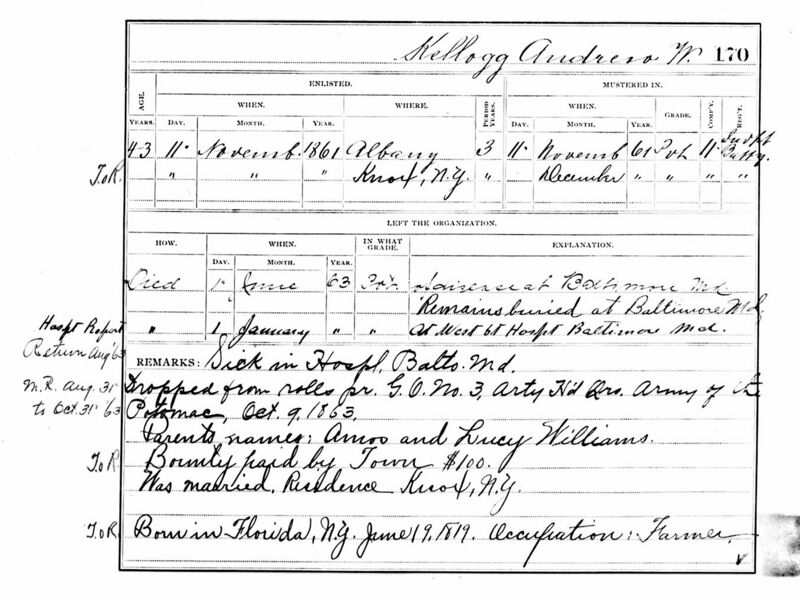 Kellogg Andrew W. 170
AGE. ENLISTED. MUSTERED IN.
WHEN. WHERE. PERIOD YEARS. WHEN. GRADE. COMP'Y. REG'T.
YEARS. DAY. MONTH. YEAR. DAY. MONTH. YEAR.
43 11" Novemb. 1861 Albany 3 11" Novemb 61 Pvt 11" Indpt Batty.
T.o.R. " " " Knox, N.Y. " December " " " "
LEFT THE ORGANIZATION.
HOW. WHEN. IN WHAT GRADE. EXPLANATION.
DAY. MONTH. YEAR.
Died 1" June 63 Pvt disease at Baltimore Md.
Remains buried at Baltimore Md.
Hospt Report " 1 January " " At West bt Hospt Baltimore Md.
Return Aug '63
REMARKS: Sick in Hospl, Balto. Md.
M.R. Aug. 31" Dropped from rolls pr. G.O. No. 3, Arty H'd Qrs. Army of the
to Oct. 31" '63 Potomac, Oct. 9, 1863.
Parents names: Amos and Lucy Williams.
T.o.R. Bounty paid by Town $100.
Was married. Residence Knox, N.Y.
T.o.R. Born in Florida, N.Y. June 19, 1819. Occupation: Farmer.